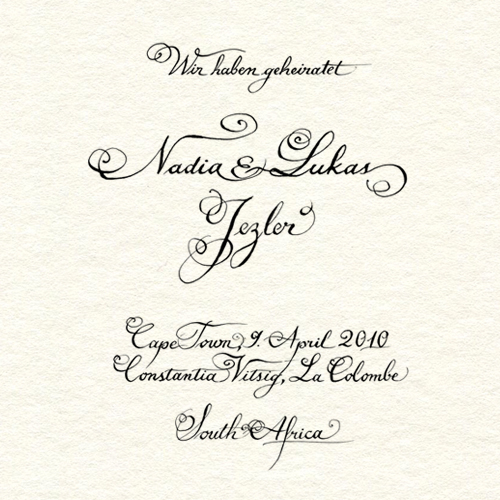 Wir haben geheiratet
Nadia & Lukas
Jezler
Cape Town, 9. April 2010
Constantia Vitsig, La Colombe
South Africa